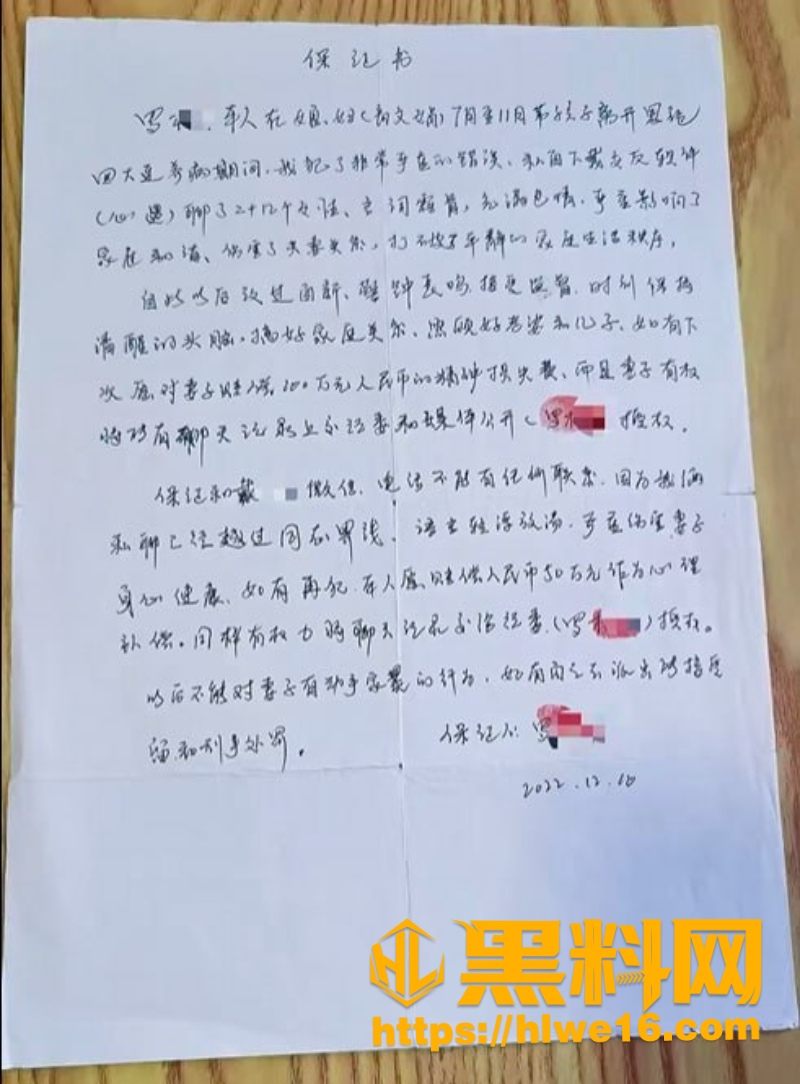 保证书
罗 本人在 7月至11月带孩子离开恩施
回大连养病期间,我犯了非常严重的错误、私自下载交友软件
(心遇)聊了二十几个女性、言词露骨,充满色情,严重影响了
家庭和谐、伤害了夫妻关系,打破了平静的家庭生活秩序,
自此以后改过自新、警钟长鸣 接受监督 时刻保持
清醒的头脑,搞好家庭关系、照顾好老婆和儿子、如有下
次愿对妻子赔偿 200万元人民币的精神损失费、而且妻子有权
将所有聊天记录上交纪委和媒体公开( 授权.
保证和戴 微信、电话不能有任何联系、因为我俩
私聊已经越过同石界线、语言轻浮放荡、严重伤害妻子
身心健康、如有再犯、本人愿赔偿人民币50万元作为心理
补偿。同样有权力将聊天记录交给纪委(罗 )授权。
以后不能对妻子有动手家暴的行为,如有 派出所接受
和刑事处罚。 保证人:罗
2022.12.
HL 黑料网
https://hlwe16.com